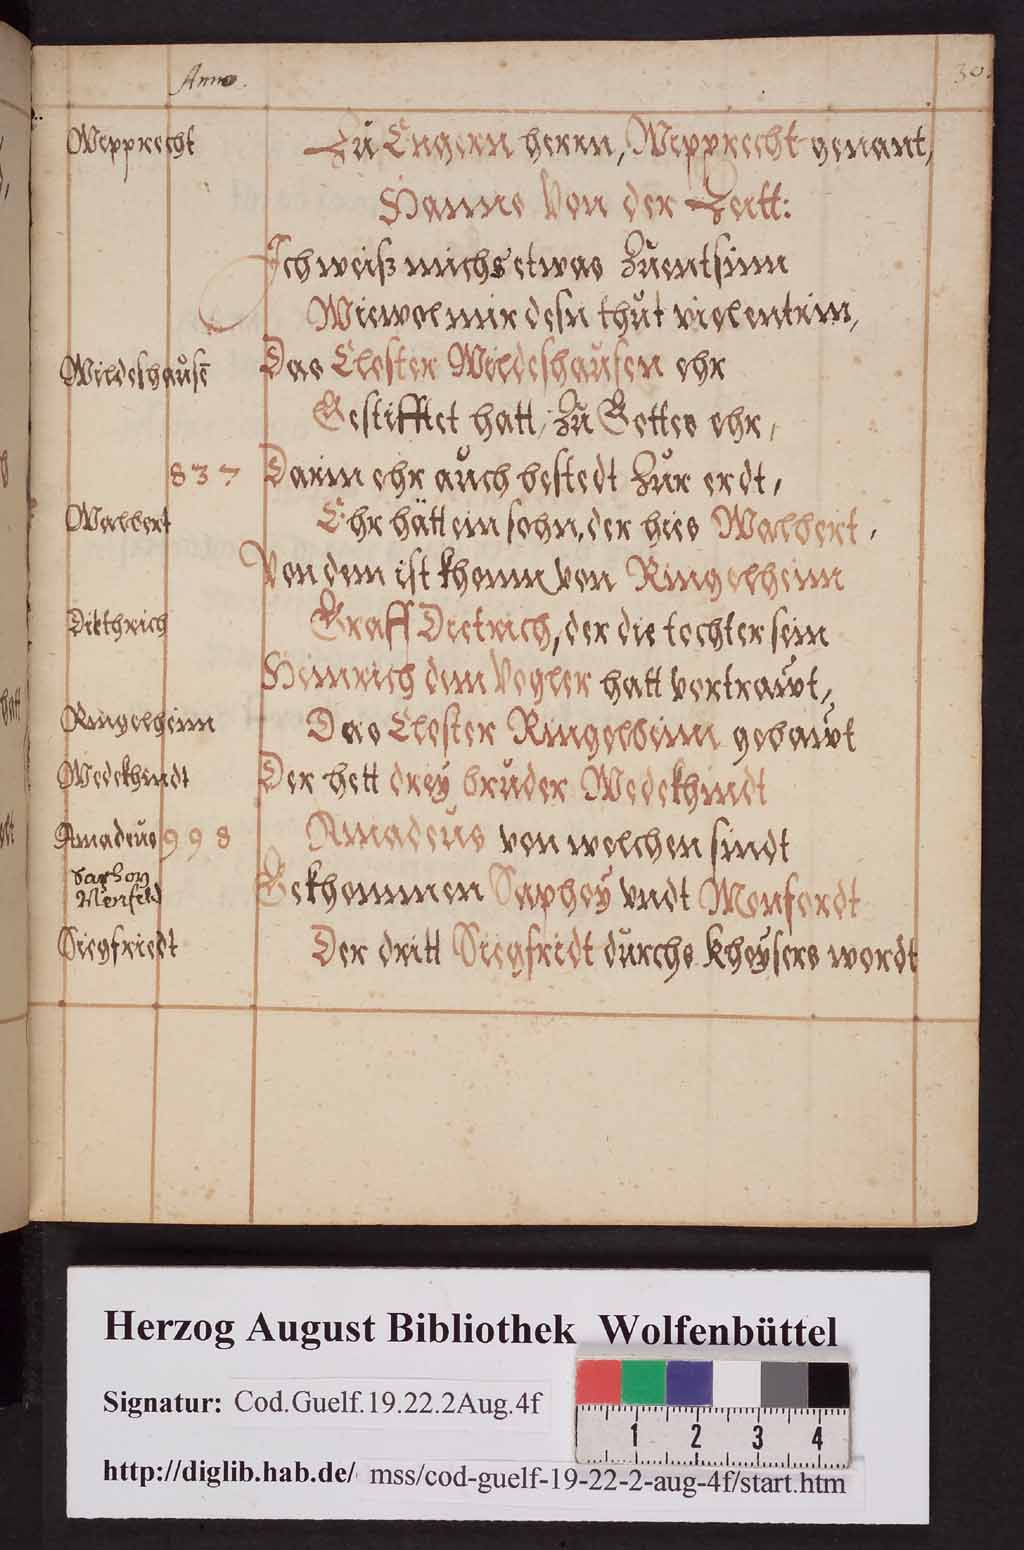 Anno.
30.
Wepprecht
Zů Engern herrn, Wepprecht genant,
Hanns Von der Zeitt:
Ich weiß michs etwas Zůentsinn
Wiewol mir desn thůt viel entrin,
Wildeshaůsē
Das Closter Wildeshaůsen ehr
Gestifftet hatt, Zů Gottes ehr,
837
Darin ehr aůch bestedt Zůr erdt,
Walbert
Ehr hätt ein sohn, der hies Walbert,
Von dem ist khomn von Ringelheim
Ditthrich
Graff Dietrich, der die tochter sein
Heinrich dem Vogler hatt vertrawt,
Ringelheim
Das Closter Ringelheim gebawt
Wedekhindt
Der hett dreÿ brůder Wedekhindt
Amadeůs 998
Amadeůs von welchen sindt
Saphoy
Monfeld
Gekhommen Saphoÿ vndt Monferdt
Siegfriedt
Der dritt Siegfridt důrchs Kheÿsers wordt
Herzog August Bibliothek Wolfenbüttel
Signatur: Cod.Guelf.19.22.2Aug.4f
1 2 3 4
http://diglib.hab.de/ mss/cod-guelf-19-22-2-aug-4f/start.htm